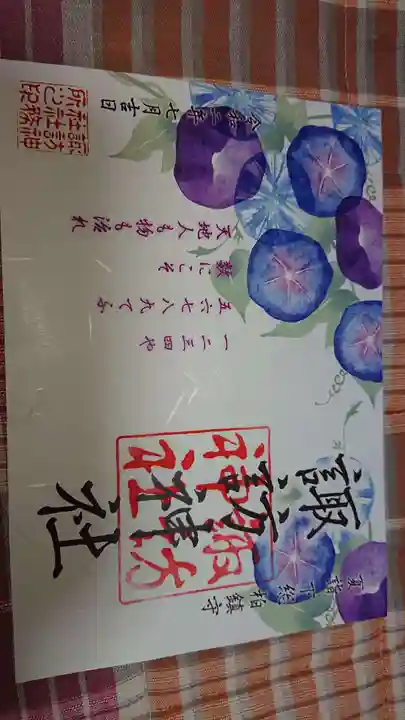 夏詣 下総 柏鎮守
諏訪神社
諏方
神社
一二三四や
五六七八九てふ
数にこそ
天地人も物も治れ
令和二年七月吉日
諏訪神
社社務
所之印